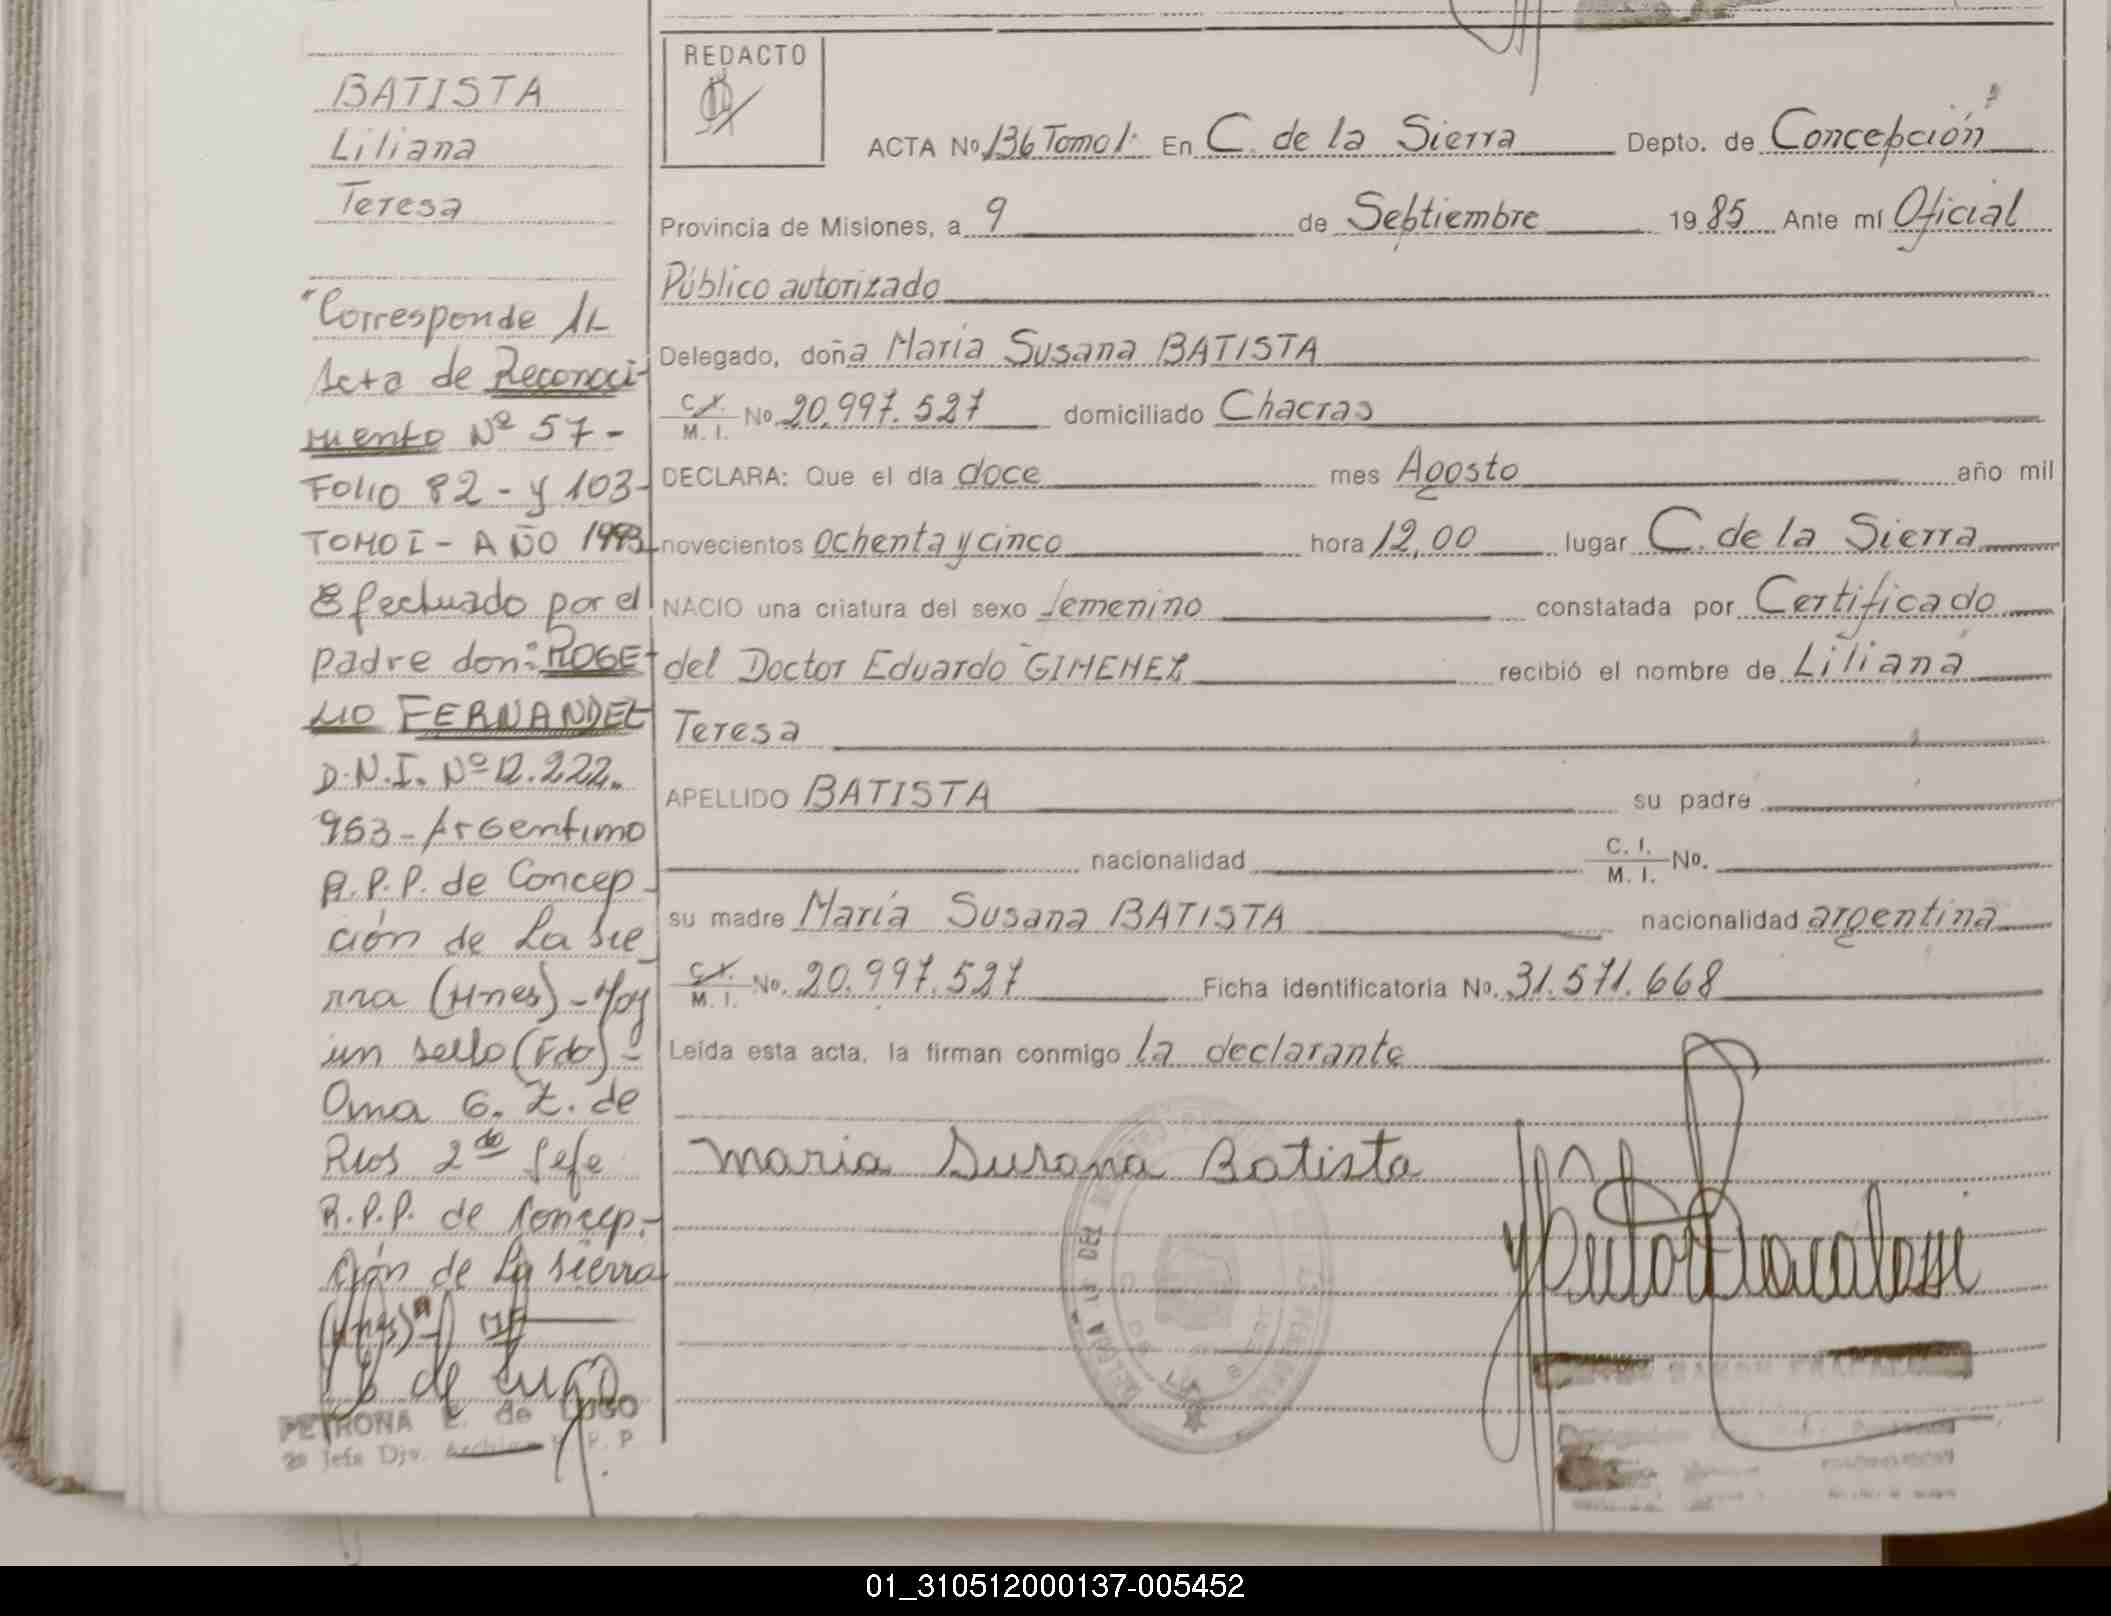 BATISTA
Liliana
Teresa
"Corresponde AL
Acta de Reconoci-
miento Nº 57-
Folio 82 - y 103-
TOMO I - AÑO 1993
Efectuado por el
padre don: ROGE-
LIO FERNANDEZ
D.N.I. Nº 12.222.
963 - Argentino
R.P.P. de Concep
ción de La Sie
rra (Mnes) - Hay
un sello (Fdo) -
Oma G. Z. de
Rios 2do Jefe
R.P.P. de Concep-
ción de La Sierra
(Mnes)"
PETRONA E. de LUGO
2º Jefe Div. Archivo R. P. P
REDACTO
ACTA No. 136 Tomo 1. En C. de la Sierra Depto. de Concepción
Provincia de Misiones, a 9 de Septiembre 1985 Ante mí Oficial
Público autorizado
Delegado, doña María Susana BATISTA
C.I. M. I. No. 20.997.527 domiciliado Chacras
DECLARA: Que el día doce mes Agosto año mil
novecientos ochenta y cinco hora 12,00 lugar C. de la Sierra
NACIO una criatura del sexo femenino constatada por Certificado
del Doctor Eduardo GIMENEZ recibió el nombre de Liliana
Teresa
APELLIDO BATISTA su padre
nacionalidad C. I. M. I. No.
su madre María Susana BATISTA nacionalidad argentina
C.I. M. I. No. 20.997.527 Ficha identificatoria No. 31.571.668
Leída esta acta, la firman conmigo la declarante
Maria Susana Batista
01_310512000137-005452